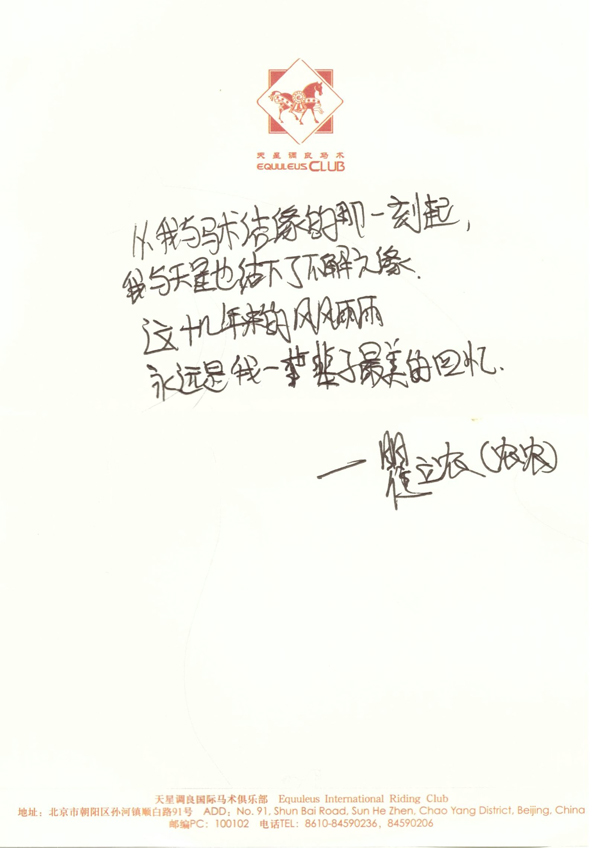 天星调良马术
EQUULEUS CLUB
从我与马术结缘的那一刻起，
我与天星也结下了不解之缘.
这十几年来的风风雨雨
永远是我一辈子最美的回忆.
— 瞿立农(农农)
天星调良国际马术俱乐部 Equuleus International Riding Club
地址：北京市朝阳区孙河镇顺白路91号 ADD：No. 91, Shun Bai Road, Sun He Zhen, Chao Yang District, Beijing, China
邮编PC：100102 电话TEL：8610-84590236，84590206